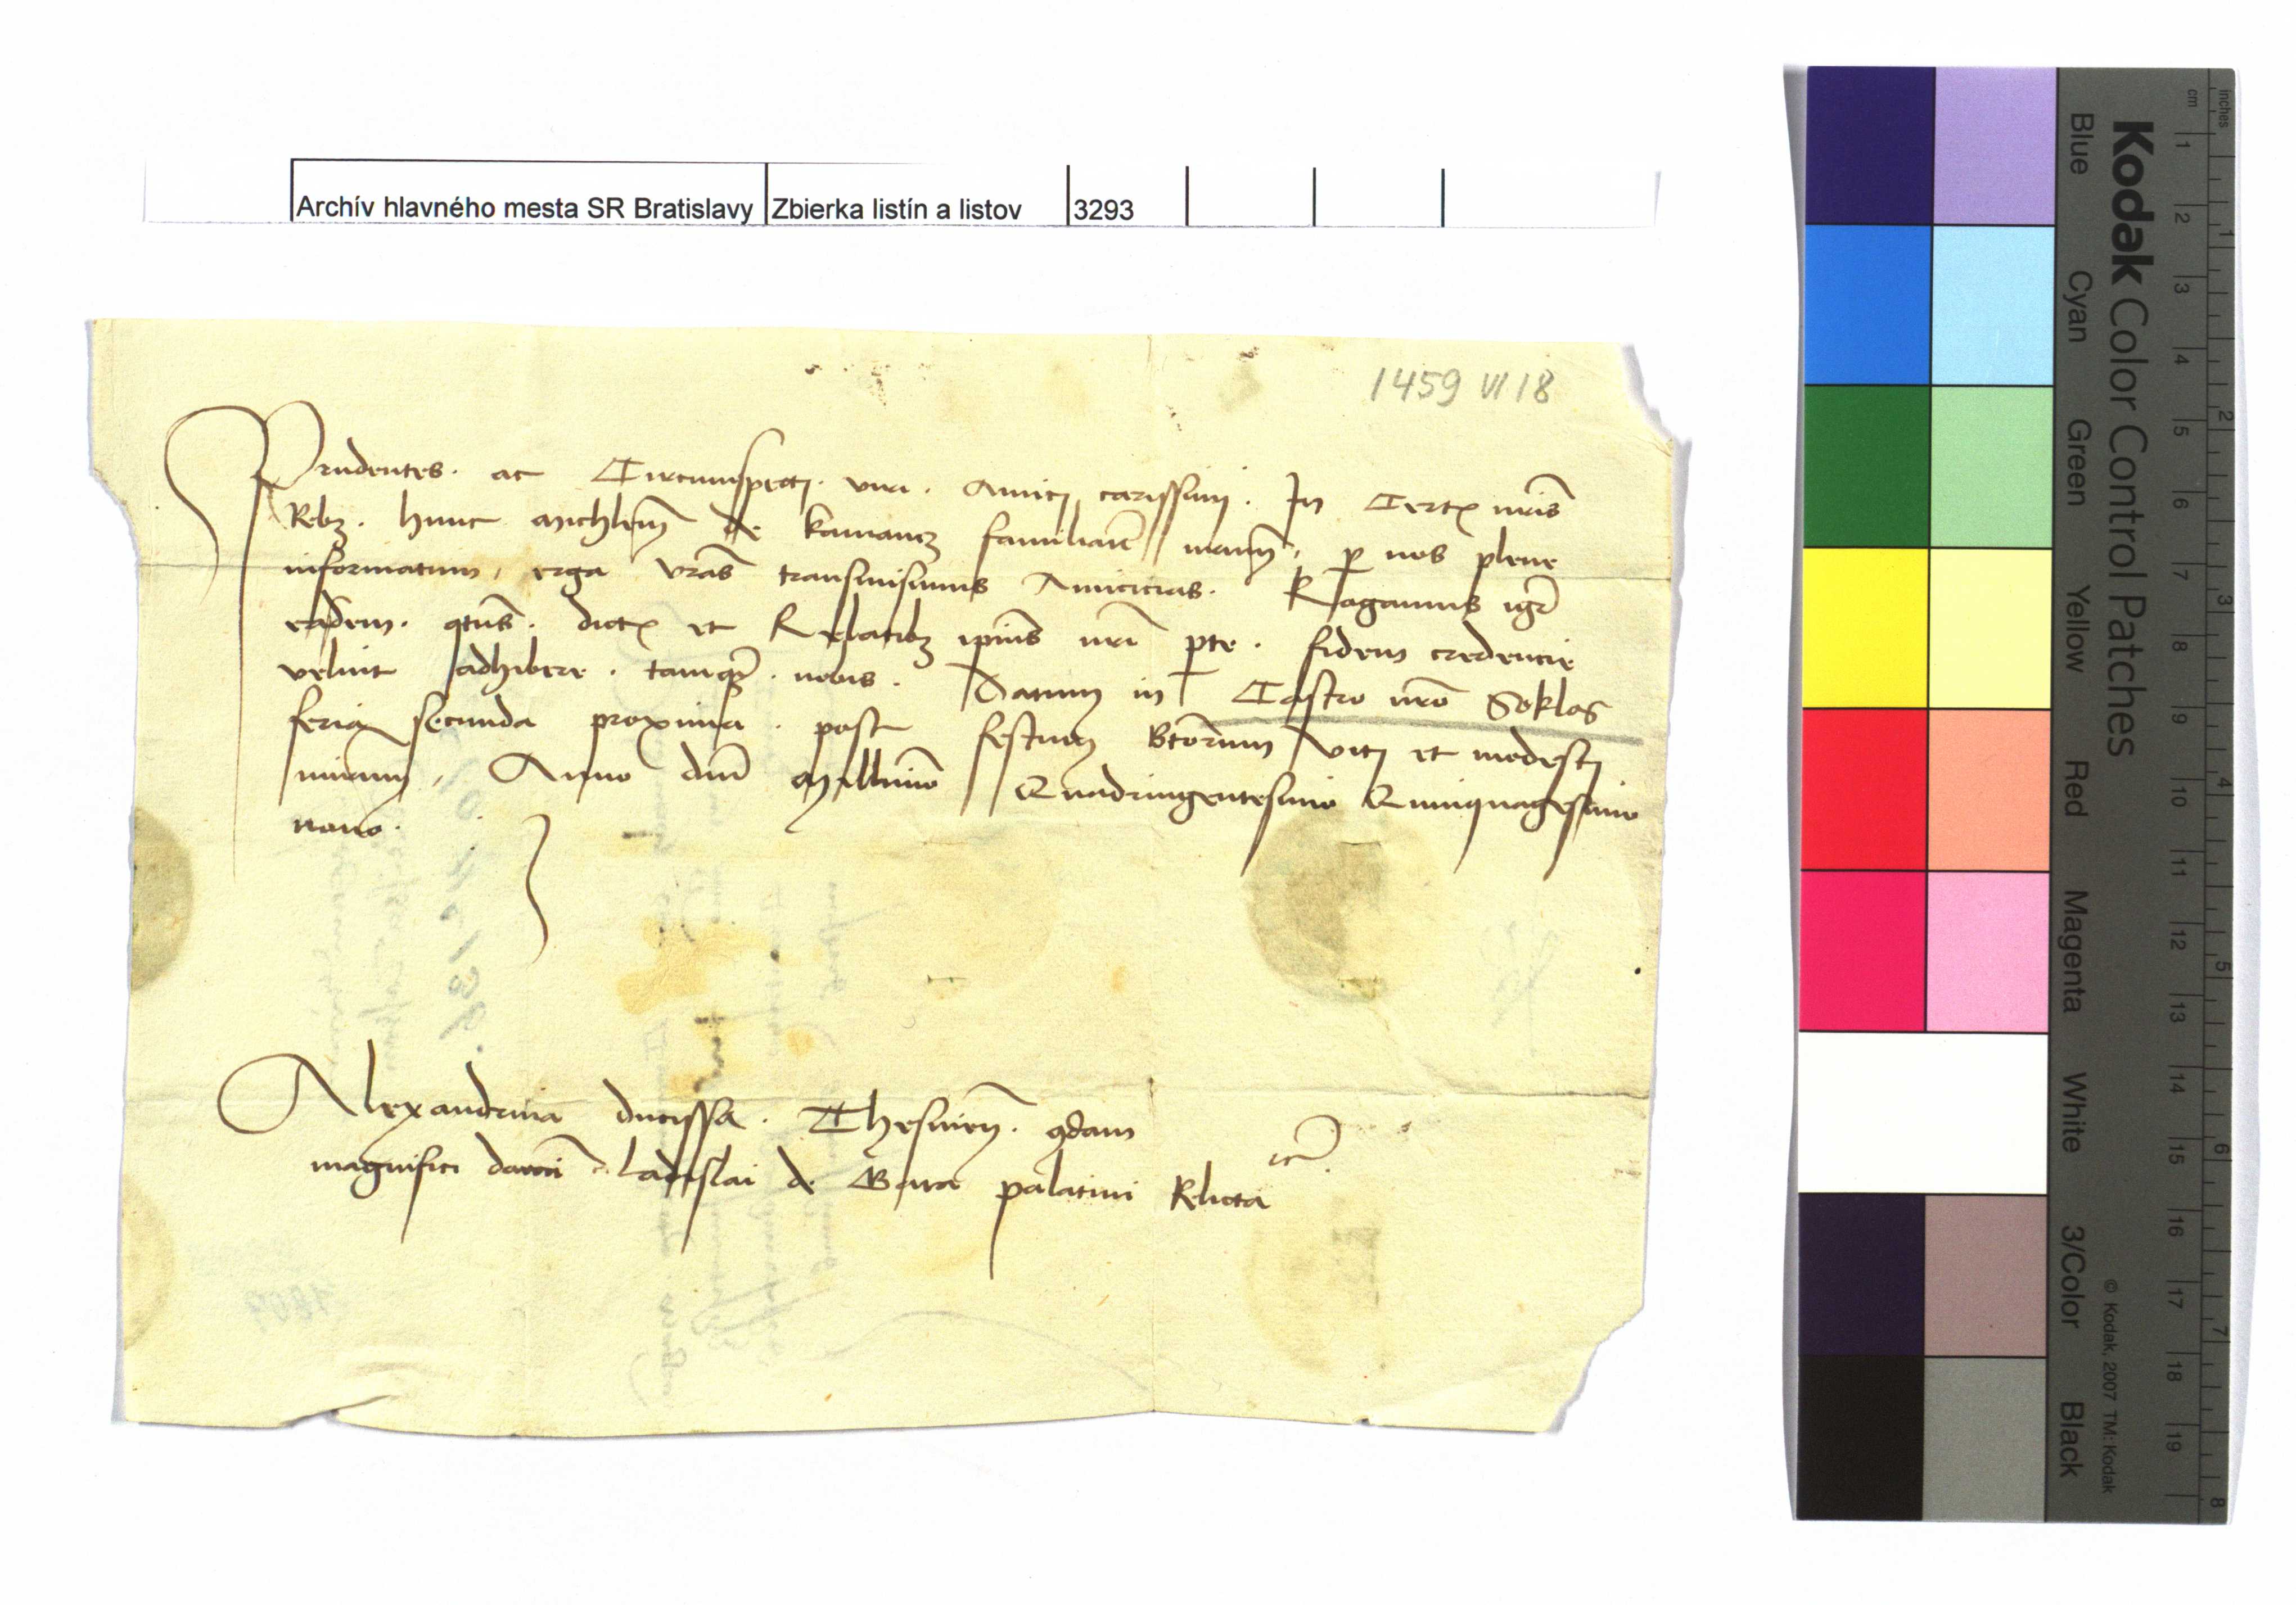 Archív hlavného mesta SR Bratislavy Zbierka listín a listov 3293
1459 VI 18
Prudentes. ac Circumspecti. viri. Amici carissimi. In Certꝭ nr̄is
Rebꝫ. hunc Michlem̄ de kamancz familiarē nr̄um, ꝑ nos plene
informatum, erga vr̄as transmisimus Amicicias. Rogamus igr̄
easdem. qtūs. dictꝭ et Relatibꝫ ipīus nr̄i ꝑte. fidem credencie
velint adhibere. tamqꝫ. nobis. Datum in Castro nr̄o Soklos
feria secunda proxima. post festum Btōrum viti et modesti
mr̄um, Anno dn̄i Millīmo Quadringentesimo Quinquagesimo
nono.
Alexandrina ducissa. Thesinen̄. qdam
magnifici domini Ladislai de Gara palatini Relicta etc̄.
Kodak Color Control Patches
Blue Cyan Green Yellow Red Magenta White 3/Color Black
© Kodak, 2007 TM: Kodak
inches 1 2 3 4 5 6 7 8
cm 1 2 3 4 5 6 7 8 9 10 11 12 13 14 15 16 17 18 19